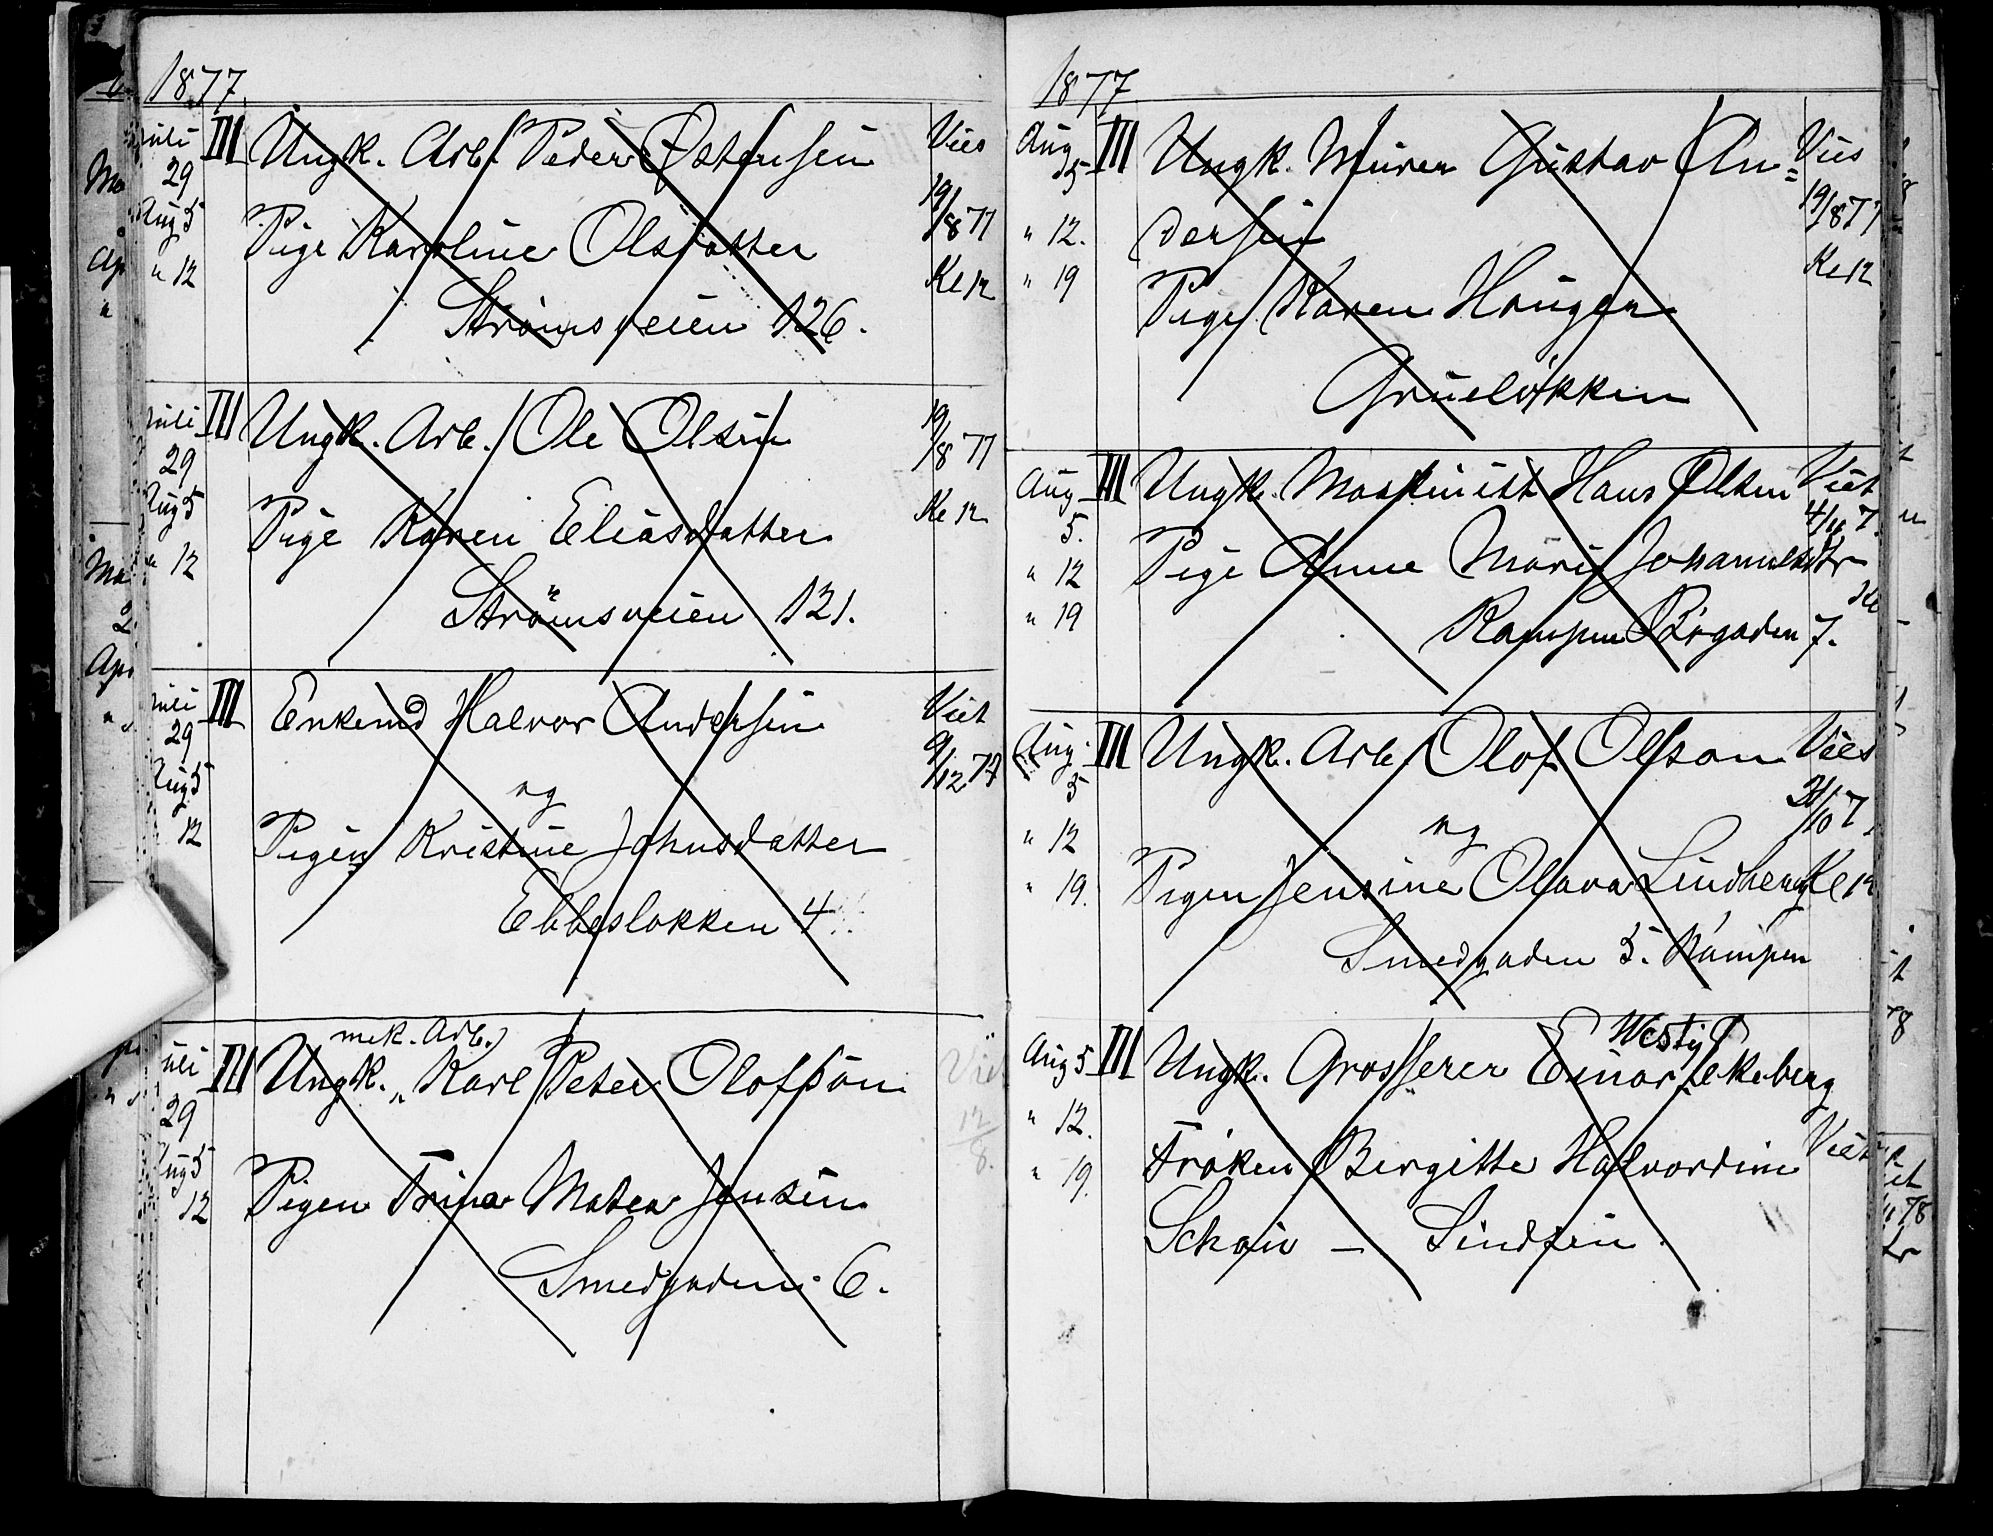 1877.
Juli 29 Aug 5 " 12 III Ungk. Arb. Peder Østensen Vies 19/8 77
Pige Karoline Olsdatter Kl 12
Strömsveien 126.
Juli 29 Aug 5 " 12 III Ungk. Arb. Ole Olsen 19/8 77
Pige Karen Eliasdatter Kl 12
Strömsveien 121.
Juli 29 Aug 5 12 III Enkemd Halvor Andersen Viet 9/12 77
og
Pigen Kristine Johnsdatter
Ebbesløkken 4
mek. Arb.
Juli 29 Aug 5 12 III Ungk. " Karl Peter Olofsson Viet 12/8.
Pigen Trina Matea Jensen
Smedgaden 6.
1877
Aug 5 III Ungk. Murer Gustav An= Vies 19/8 77
" 12. dersen Kl 12
" 19 Pige Karen Haugen
Grueløkken
Aug 5. III Ungk. Maskinist Hans Olsen Viet 4/11 7
" 12 Pige Anne Marie Johannesdtr Kl
" 19 Kampen Bøgaden 7.
Aug. 5 III Ungk. Arb. Olof Olsson Vies 21/10 7
" 12 og
" 19. Pigen Jensine Olava Lindberg Kl 12
Smedgaden 5. Kampen
Westye
Aug 5 III Ungk. Grosserer Einar Ekeberg
" 12. Frøken Birgitte Halvordine Viet
" 19. Schøin — Lindsein.